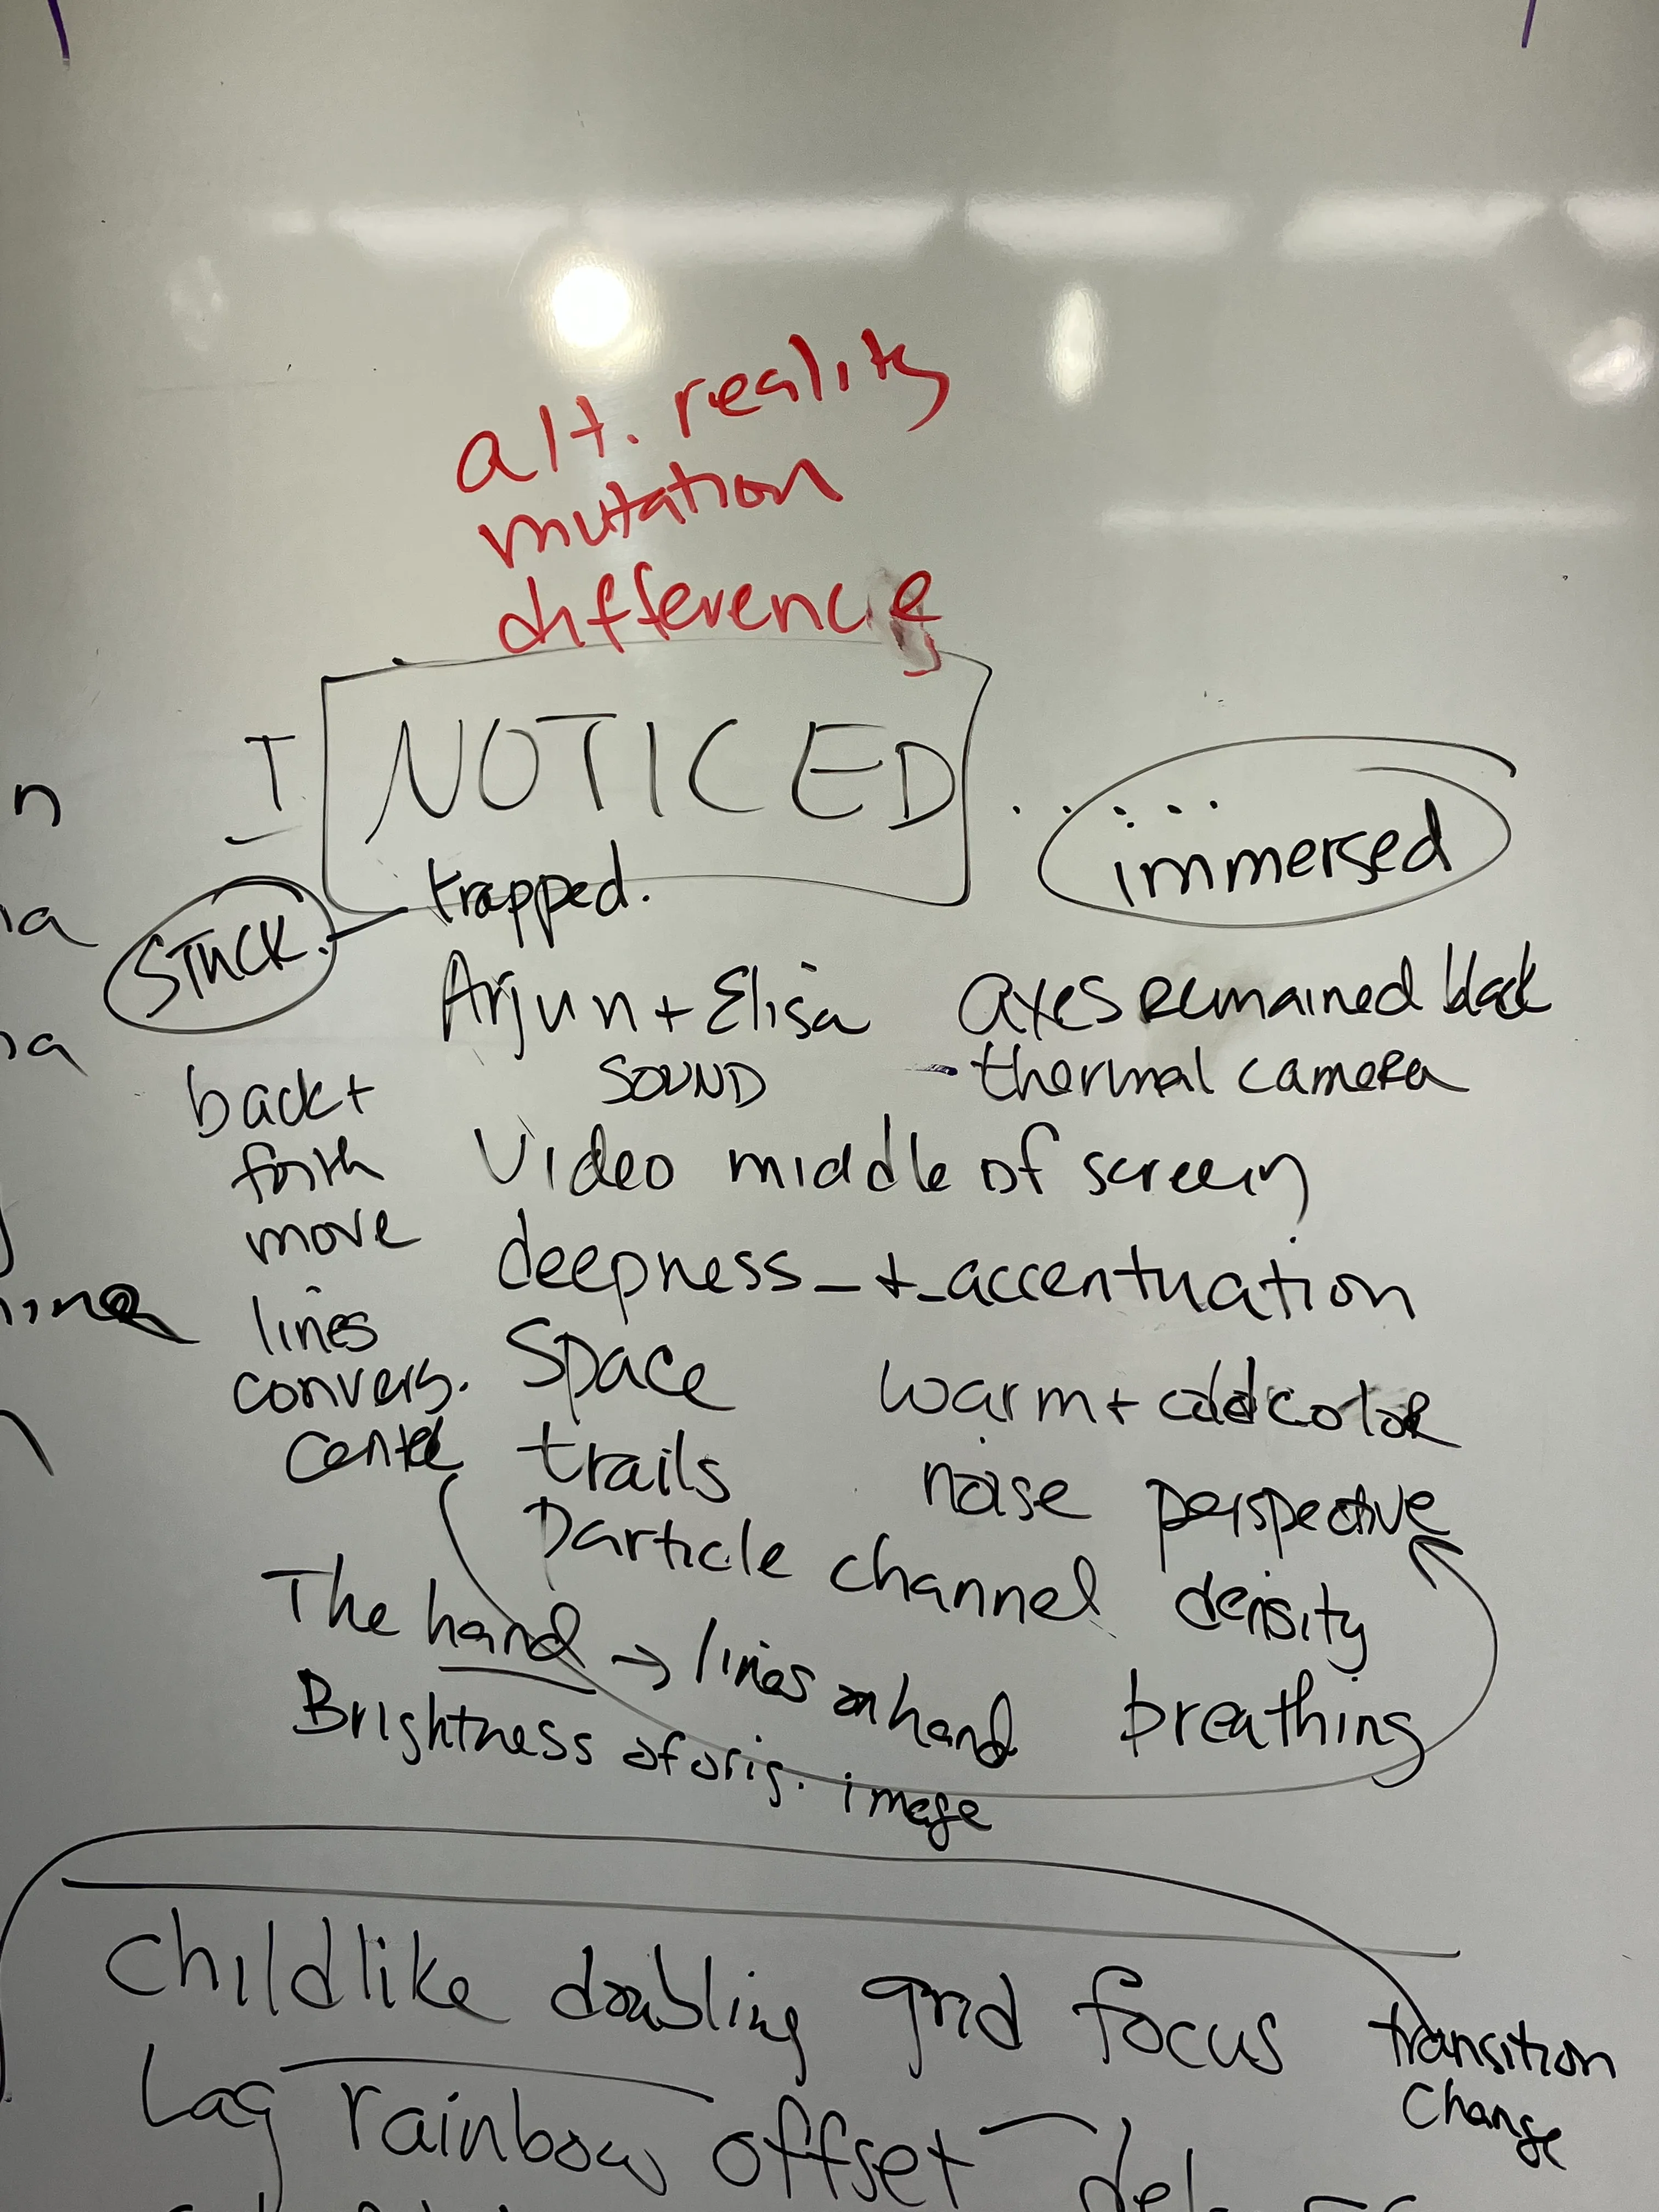 alt. reality
mutation
difference
I NOTICED ......
immersed
trapped.
STUCK.
Arjun + Elisa axes remained black
SOUND - thermal camera
back +
forth
move
lines
convers.
center
Video middle of screen
deepness - + - accentuation
Space warm + cold color
trails noise perspective
Particle channel density
The hand → lines on hand breathing
Brightness of orig. image
childlike doubling grid focus transition
change
Lag rainbow offset